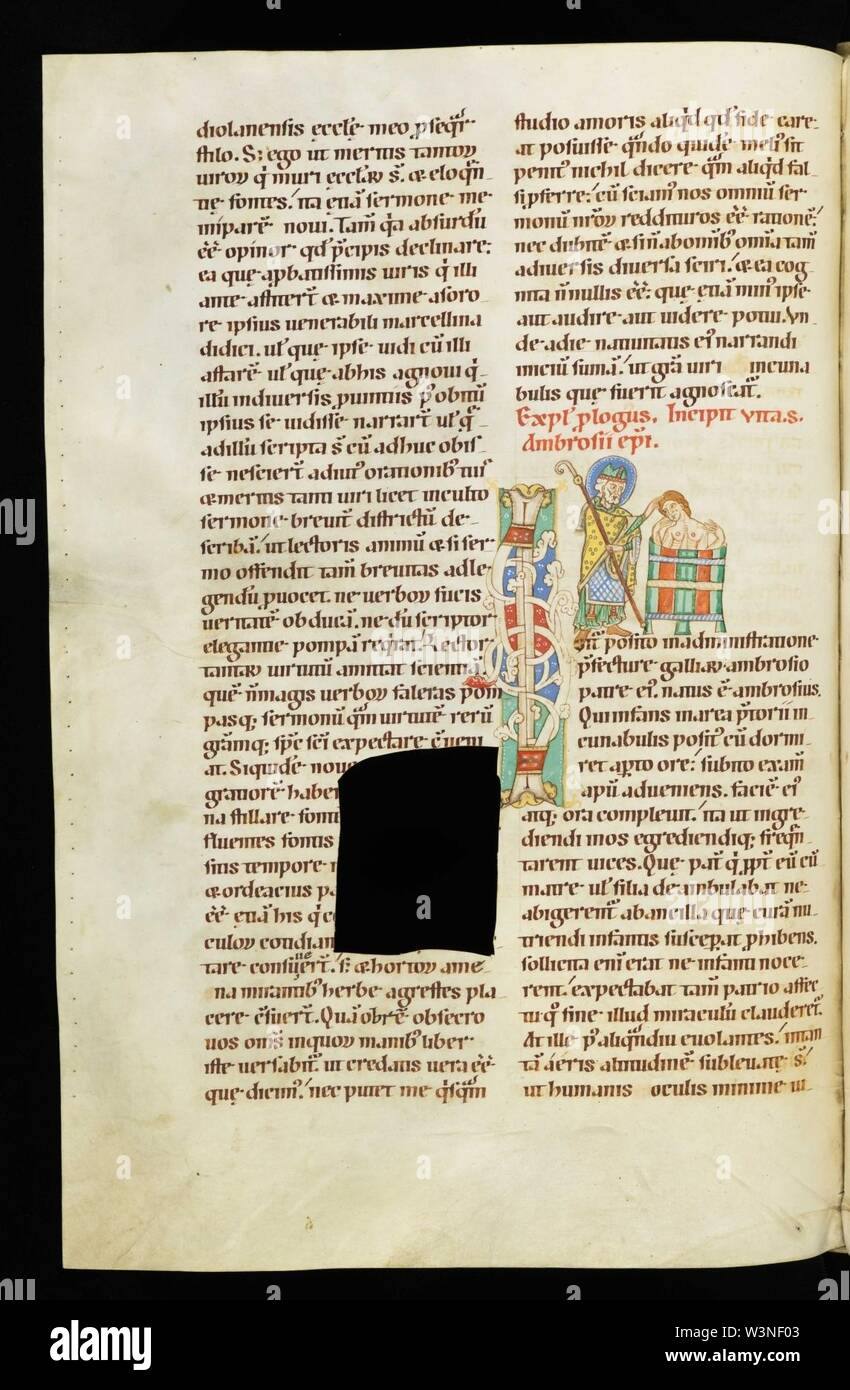 diolanensis eccl̄e meo ꝑseqr̄
stilo. S; ego ut meritis tantoꝝ
uiroꝝ q̇ muri eccl̄aꝝ s̄. & eloq̄n
tię fontes. ita etiā sermone me
inparē novi. Tam̄ q̇a absurdū
eē opinor qd̓ p̄cipis declinare:
ea que apbatissimis uiris q̇ illi
ante astiter̄ & maxime a soro
re ipsius uenerabili marcellina
didici. ul̓ quę ipse uidi cū illi
astarē ul̓ quę ab his agnoui q̇
illū in diuersis ꝓuintiis p̓ obitū
ipsius se uidisse narrar̄ ul̓ q̄
ad illū scripta s̄ cū adhuc obis
se nescirer̄ adiut᷒ orationib᷒ tuis
& meritis tanti uiri licet inculto
sermone breuit̄ districtū de
scribā. ut lectoris animū & si ser
mo offendit tam̄ breuitas ad le
gendū ꝓuocet. ne uerboꝝ fucis
ueritatē obducā. ne dū scriptor
elegantię pompā reqirit lector
tantaꝝ uirtutū amittat scientiā.
quē n̄ magis uerboꝝ faleras pom
pasq; sermonū qm̄ uirtutē rerū
grāmq; sp̄c sc̄i expectare c̄ueni
at. Siquidē noui
gratiorē haber
na stillare font
fluentes fontis
sitis tempore
& ordeacius pa
eē etiā his q̇ c
culoꝝ cotidian
tare consuer̄. s; & hortoꝝ amę
na mirantib᷒ herbe agrestes pla
cere c̄suer̄. Quā obrē obsecro
uos om̄s in quoꝝ manib᷒ liber
iste uersabit̄. ut credatis uera eē
quę dicim᷒. nec putet me q̇sqm̄
studio amoris aliqd̓ qd̓ fide care
at posuisse. qn̄do quidē meli᷒ sit
penit᷒ nichil dicere qm̄ aliqd̓ fal
si ꝓferre. cū sciam᷒ nos omniū ser
monū nr̄oꝝ reddituros eē rationē.
nec dubitē & si n̄ ab omib᷒ om̄ia tam̄
a diuersis diuersa sciri. & ea cog
nita n̄nullis eē: quę etiā min᷒ ipse
aut audire aut uidere potui. Vn
de a die natiuitatis ei᷒ narrandi
initiū sumā. ut grā uiri incuna
bulis quę fuerit agnoscat̄.
Expl̓ ꝓlogus. Incipit vita. s.
Ambrosii ep̄i.
Igit̄ posito in administratione
p̄fecture galliaꝝ ambrosio
patre ei᷒. natus ē ambrosius.
Qui infans in area p̄torii in
cunabulis posit᷒ cū dormi
ret apto ore: subito examī
apū adueniens. faciē ei᷒
atq; ora compleuit. ita ut ingre
diendi mos egrediendiq; freqn̄
tarent uices. Quę pat̄ q̇ ꝓpt̄ eū cū
matre ul̓ filia deambulabat ne
abigerent̄ ab ancilla quę curā nu
triendi infantis susceꝑat ꝓhibens.
sollicita eni erat ne infanti noce
rent. expectabat tam̄ patrio affec
tu q̇ fine illud miraculū clauderet̄.
At ille p̓ aliqn̄diu euolantes. in tan
tā aeris altitudinē subleuatę s̄.
ut humanis oculis minime ui
alamy
Image ID: W3NF03
www.alamy.com